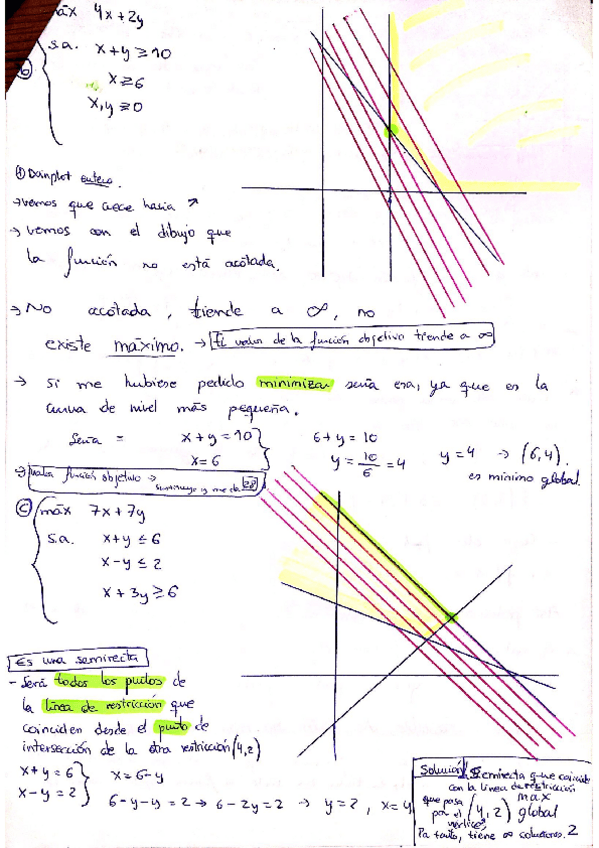 máx 4x + 2y
s.a. x + y ≥ 10
b
x ≥ 6
x, y ≥ 0
→ vemos que crece hacia ↗
→ vemos con el dibujo que
la función no está acotada.
→ No acotada, tiende a ∞, no
existe máximo. → El valor de la función objetivo tiende a ∞
→ Si me hubiese pedido minimizar sería esa, ya que es la
curva de nivel más pequeña.
Sería = x + y = 10
x = 6
6 + y = 10
y = 10/6 = 4
y = 4 → (6,4).
es mínimo global.
→ valor función objetivo →
sustituyo y me da 28
c
máx 7x + 7y
s.a. x + y ≤ 6
x - y ≤ 2
x + 3y ≥ 6
Es una semirecta
- Será todos los puntos de
la línea de restricción que
coinciden desde el punto de
intersección de la otra restricción (4,2)
x + y = 6
x - y = 2
x = 6 - y
6 - y - y = 2 → 6 - 2y = 2 → y = 2, x = 4
Solución: Semirecta que coincide
con la línea de restricción
que pasa por el vértice (4,2) max global
Por tanto, tiene ∞ soluciones. 2